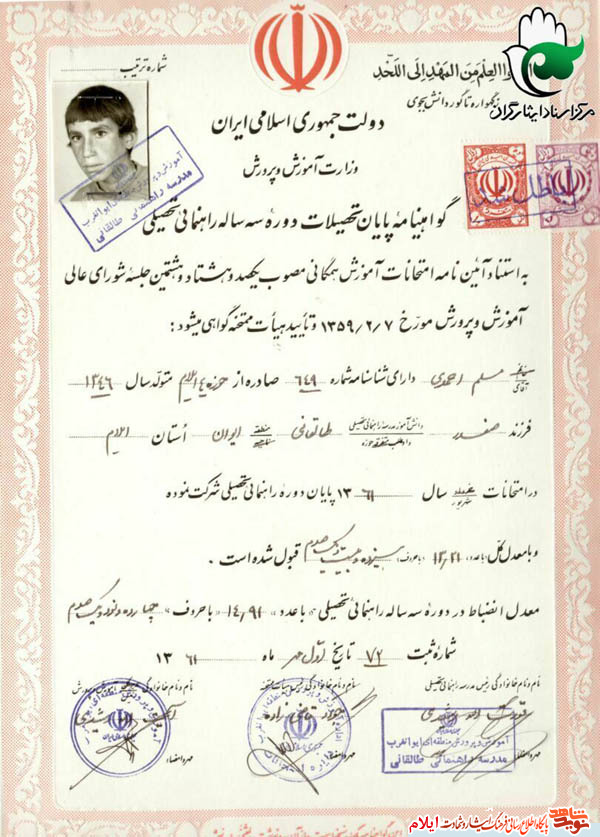 اطلبوا العلم من المهد إلى اللحد
زگهواره تا گور دانش بجوی
مرکز اسناد ایثارگران
شماره ترتیب:
دولت جمهوری اسلامی ایران
وزارت آموزش و پرورش
گواهینامهٔ پایان تحصیلات دورهٔ سه ساله راهنمائی تحصیلی
به استناد آئین نامه امتحانات آموزش همگانی مصوب یکصد و هشتاد و هشتمین جلسه شورای عالی
آموزش و پرورش مورخ ۱۳۵۹/۲/۷ و تأیید هیأت ممتحنه گواهی میشود:
آقای مسلم احمدی دارای شناسنامه شماره ۶۴۹ صادره از حوزه ۴ ایلام متولد سال ۱۳۴۶
فرزند صفدر دانش آموز مدرسه راهنمائی تحصیلی طالقانی منطقه ایوان استان ایلام
داوطلب متفرقه حوزه
در امتحانات سال ۱۳۶۱ پایان دوره راهنمائی تحصیلی شرکت نموده
و با معدل کل (با عدد) ۱۳/۲۱ (با حروف) سیزده و بیست و یک صدم قبول شده است.
معدل انضباط در دوره سه ساله راهنمائی تحصیلی «با عدد» ۱۴/۹۱ «با حروف» چهارده و نود و یک صدم
شماره ثبت ۷۲ تاریخ اول مهر ماه ۱۳۶۱
نام و نام خانوادگی رئیس مدرسه راهنمائی تحصیلی
مهر و امضاء
مهر و امضاء
مهر و امضاء
آموزش و پرورش منطقه ای ایوانغرب
مدرسه راهنمائی طالقانی
باطل شد
مدرسه راهنمائی طالقانی
نوید شاهد
پایگاه اطلاع رسانی فرهنگ ایثار و شهادت ایلام